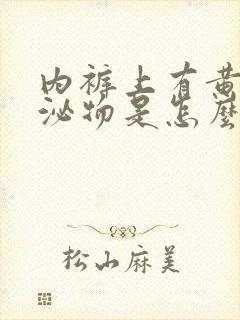 内裤上有黄
泌物是怎麼
松山麻美